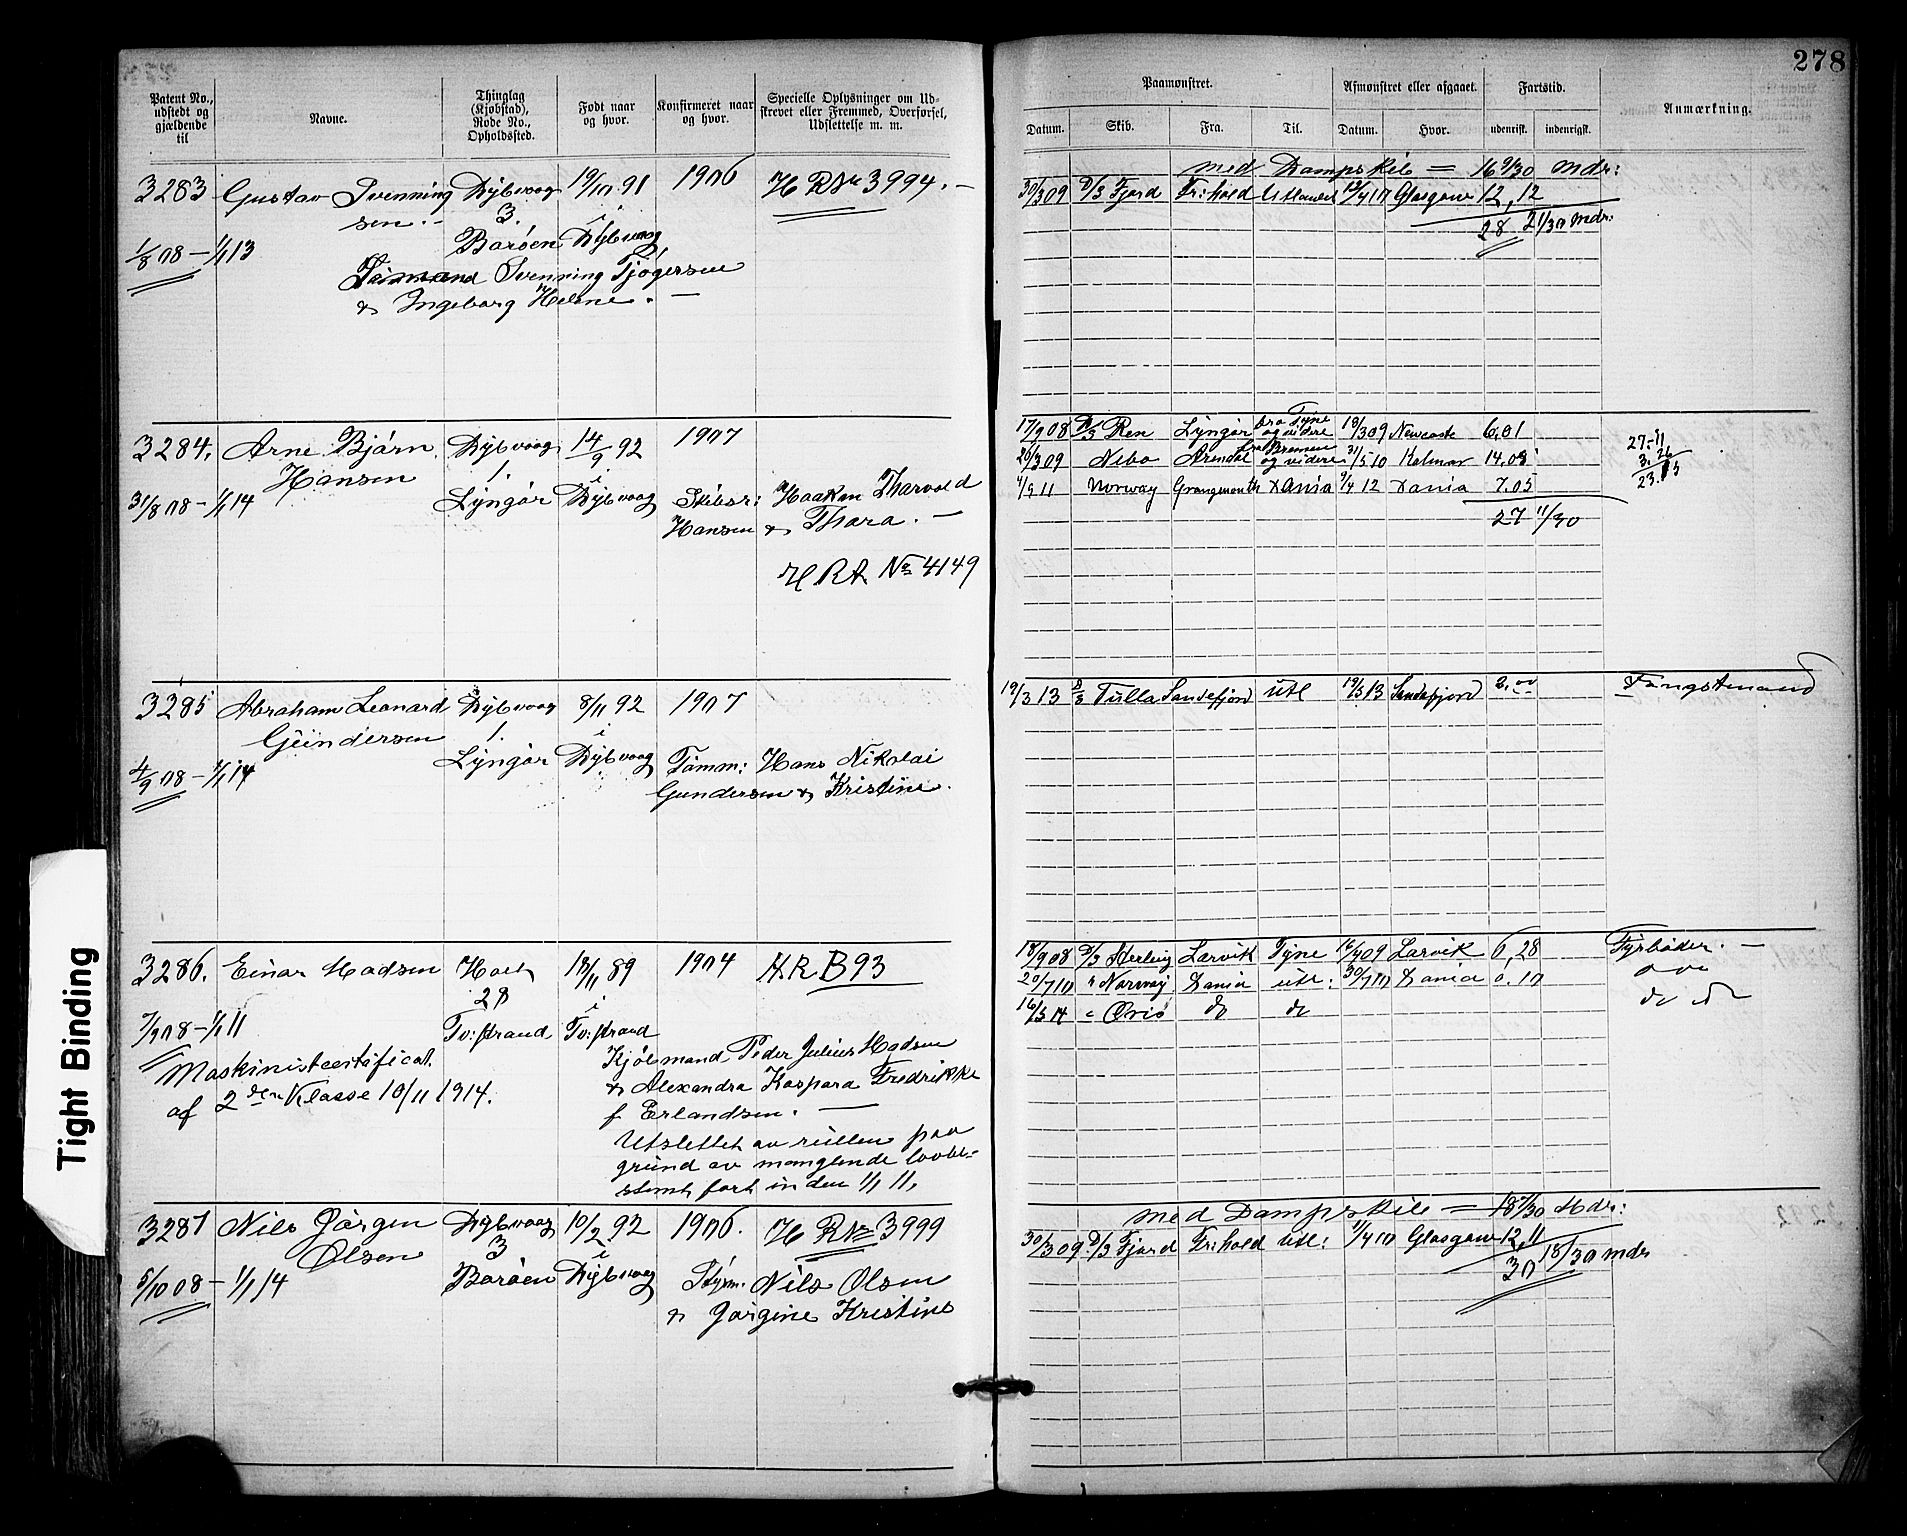 278
Patent No., udstedt og gjældende til
Navne.
Thinglag (Kjøbstad), Rode No., Opholdssted.
Født naar og hvor.
Konfirmeret naar og hvor.
Specielle Oplysninger om Udskrevet eller Fremmed, Overførsel, Udslettelse m. m.
Paamønstret.
Afmønstret eller afgaaet.
Fartstid.
Anmærkning.
Datum. Skib. Fra. Til. Datum. Hvor. udenrift. indenrigst.
3283 Gustav Svenning Dybvaag 19/10 91 1906 H R No 3994. —
sen. - 3. i
1/8 08 – 1/1 13 Borøen Dybvaag
Svenning Tjøgersen
& Ingeborg Helene. —
med Dampskib = 16 9/30 mdr:
30/3 09 D/S Fjord Fr:hald Glasgow 12, 12
28 21/30 mdr:
3284. Arne Bjørn Dybvaag 14/9 92 1907
Hansen 1. i
31/8 08 – 1/1 14 Lyngør Dybvaag Skibsr: Haaken Tharvald
Hansen & Thora. —
H R A No 4149
17/9 08 D/S Ren Lyngør Tyne og videre 18/3 09 Newcastle 6.01
20/3 09 Nebo Arendal Bremen og videre 31/5 10 Kalmar 14.05
4/9 11 Norway Grangemouth Dania 9/4 12 Dania 7.05
27 11/30
27.11
3.26
23.15
3285 Abraham Leonard Dybvaag 8/11 92 1907
Gundersen 1. i
4/9 08 – 1/1 14 Lyngør Dybvaag Tømm: Hans Nikolai
Gundersen & Kristine.
19/3 13 D/S Tulla Sandefjord utl 19/5 13 Sandefjord 2.00 Fangstmand
3286. Einar Madsen Holt 18/11 89 1904 H.R.B 93
28 i
7/9 08 – 1/1 11 Tv:strand Tv:strand
Maskinistcertificat.
af 2den Klasse 10/11 1914.
Kjøbmand Peder Julius Madsen
& Alexandra Kaspara Fredrikke
f Erlandsen. —
Utslettet av rullen paa
grund av manglende lovbe-
stemt fart inden 1/1 11.
18/9 08 D/S Larvik Tyne 16/4 09 Larvik 6,28 Fyrbøder. —
20/7 10 " Norway Dania utl: 30/7 10 Dania 0.10
16/3 14 " do do do do
3287 Nils Jørgen Dybvaag 10/2 92 1906. H R No 3999
Olsen 3 i
5/10 08 – 1/1 14 Borøen Dybvaag Styrm. Nils Olsen
& Jørgine Kristine
med Dampskib = 18 7/30 Mdr:
30/3 09 D/S Fjord Fr:hald utl: 1/4 10 Glasgow 12,11
30 18/30 mdr
Tight Binding